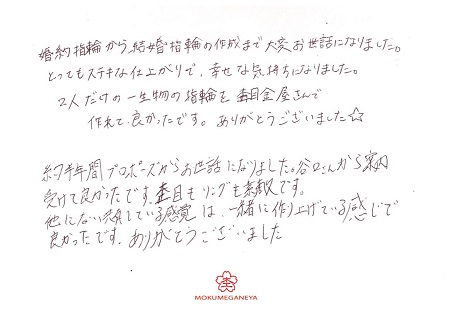 婚約指輪から結婚指輪の作成まで大変お世話になりました。
とってもステキな仕上がりで、幸せな気持ちになりました。
2人だけの一生物の指輪を杢目金屋さんで
作れて良かったです。ありがとうございました☆
約半年間プロポーズからお世話になりました。谷口さんから案内
受けて良かったです。杢目もリングも素敵です。
他にない している感覚は、一緒に作り上げている感じで
良かったです。ありがとうございました
杢
MOKUMEGANEYA